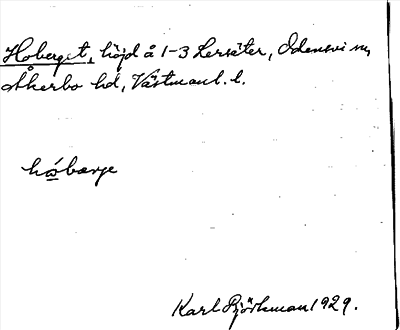 Hoberget, höjd å 1-3 Lersäter, Odensvi sn,
Åkerbo hd, Västmanl. l.
hóbærje
Karl Björkman 1929.